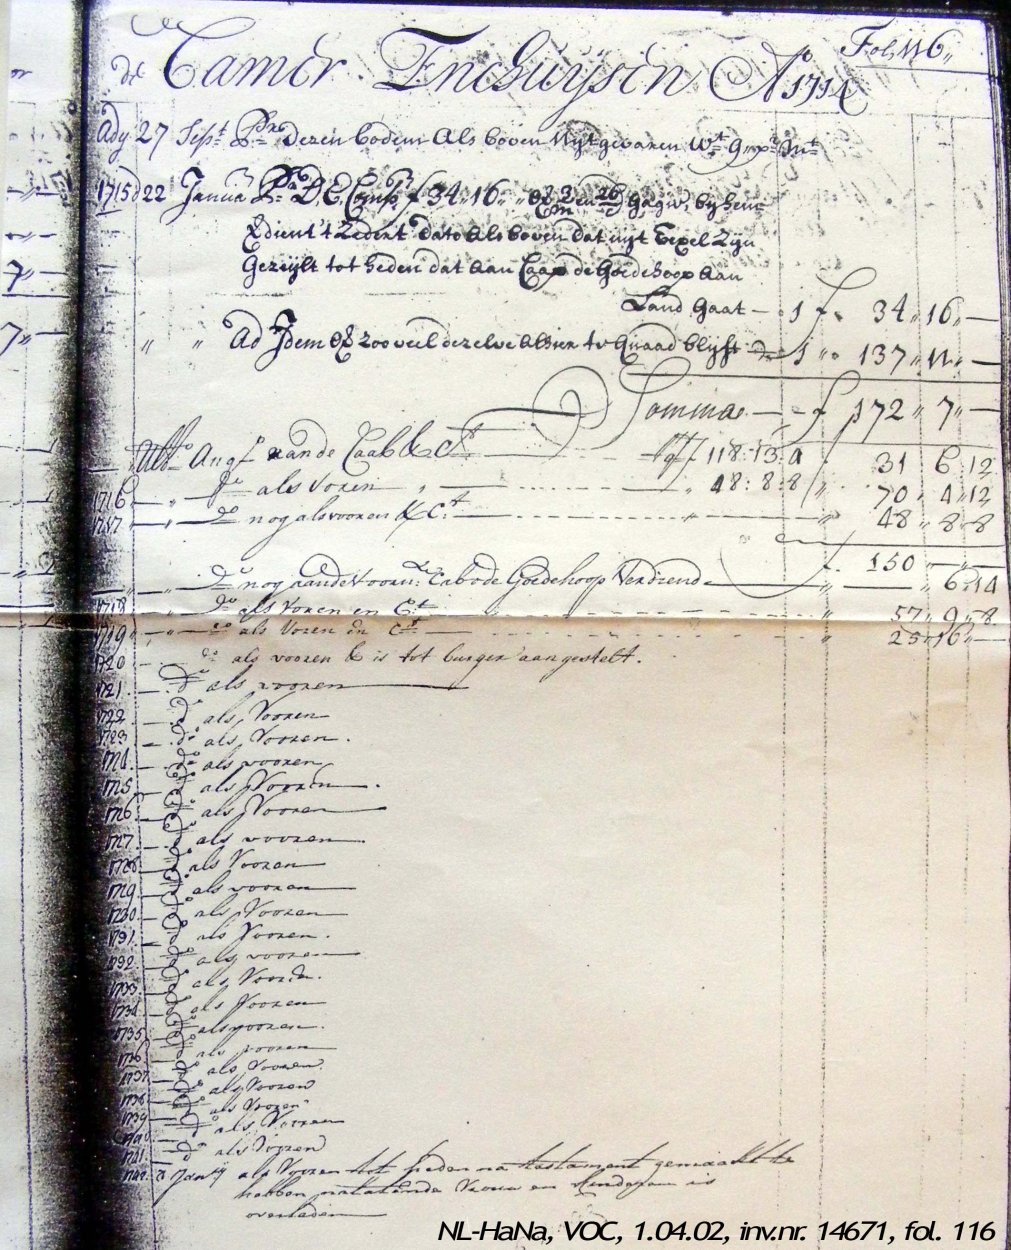 Fol. 116
de Camer Enchuÿsen Aº 1714
Ady 27 Sept. Pr. dezen bodem als boven uÿtgevaren
1715 d 22 Januari Pr. D' E. Comp. f 34,, 16,, gagie, bÿ hem
verdient 't zedert dato als boven dat uÿt Texel Zÿn
gezeÿlt tot heden dat aan Caap de goede hoop aan
Land gaat — 1 f 34,, 16,, —
,, ,, Ad Idem voor zoo veel dezelve alhier te quaad blÿft 1 ,, 137,, 11,, —
Somma — f 172,, 7,, —
Ult. Aug. aan de Caab & Ct. 118:13:4 31 6:12
1716 do als voren ,, 48:8:8 70,, 4:12
1717 do nog als vooren & Ct. 48,, 8:8
150
do nog aan de voorn: Cabo de Goedehoop Verdiend 6:14
1718 do als voren en Ct. 57,, 9:8
1719 do als voren en Ct. 25,, 16,, —
1720 do als vooren & is tot burger aangestelt.
1721 do als vooren
1722 do als vooren
1723 do als vooren.
1724 do als vooren
1725 do als vooren.
1726 do als vooren
1727 do als vooren
1728 do als vooren
1729 do als vooren
1730 do als vooren
1731 do als vooren.
1732 do als vooren
1733 do als vooren.
1734 do als vooren
1735 do als vooren.
1736 do als vooren
1737 do als vooren.
1738 do als vooren
1739 do als vooren
1740 do als vooren
1741 do als vooren
1742 Janrÿ als vooren tot heden na testament gemaakt te
hebben nalatende vrouw en kinderen is
overleden
NL-HaNa, VOC, 1.04.02, inv.nr. 14671, fol. 116